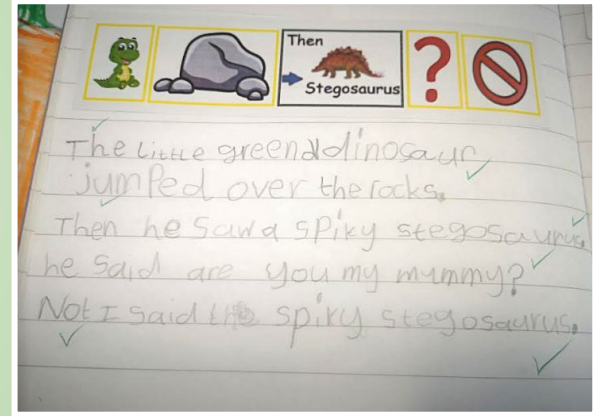 Then
Stegosaurus
?
The Little green dinosaur
jumped over the rocks.
Then he Saw a spiky stegosaurus.
he said are you my mummy?
Not I said the spiky stegosaurus.